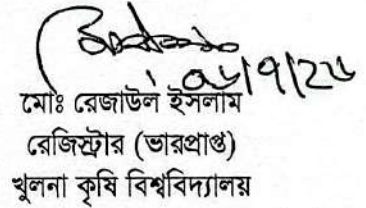 মোঃ রেজাউল ইসলাম
রেজিস্ট্রার (ভারপ্রাপ্ত)
খুলনা কৃষি বিশ্ববিদ্যালয়